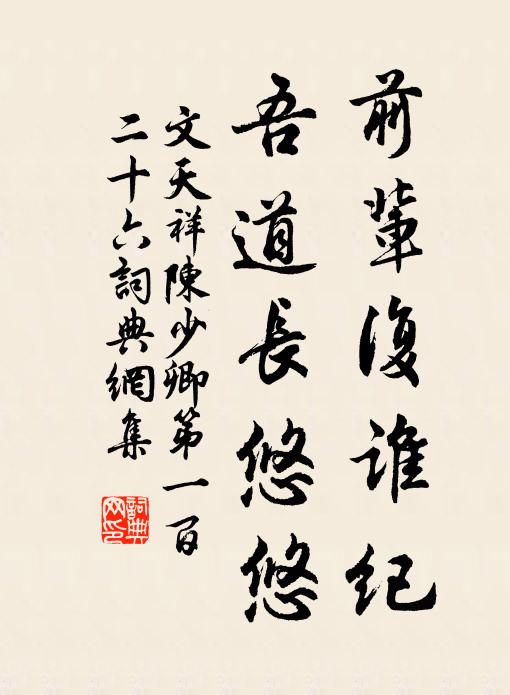 前輩復誰紀
吾道長悠悠
文天祥陳少卿第一百
二十六詞典網集
詞典網印